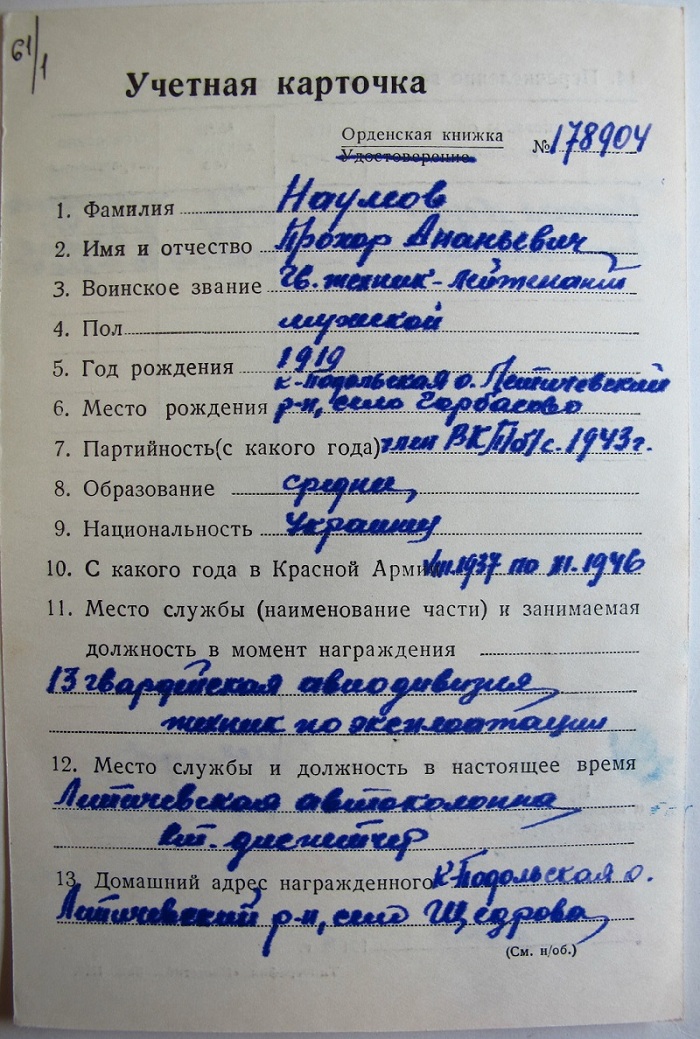 61/1
Учетная карточка
Орденская книжка
Удостоверение № 178904
1. Фамилия Наумов
2. Имя и отчество Прохор Ананьевич
3. Воинское звание Гв. техник-лейтенант
4. Пол мужской
5. Год рождения 1919
к-Подольская о. Летичевский
6. Место рождения р-н, село Горбасово
7. Партийность(с какого года) член ВКП/б/ с. 1943 г.
8. Образование средне,
9. Национальность Украинец
10. С какого года в Красной Армии VIII.1937 по XI.1946
11. Место службы (наименование части) и занимаемая
должность в момент награждения
13 гвардейская авиодивизия,
техник по эксплоатации
12. Место службы и должность в настоящее время
Летичевская автоколонна
диспетчер
13. Домашний адрес награжденного К-Подольская о.
Летичевский р-н, село Щедрова,
(См. н/об.)